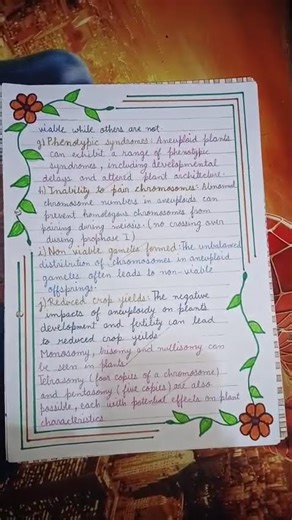 viable while others are not.
g) Phenotypic syndromes: Aneuploid plants
can exhibit a range of phenotypic
syndromes, including developmental
delays and altered plant architecture.
h) Inability to pair chromosomes: Abnormal
chromosome numbers in aneuploids can
prevent homologous chromosomes from
pairing during meiosis. (no crossing over
during prophase I)
i) Non viable gametes formed: The unbalanced
distribution of chromosomes in aneuploid
gametes often leads to non-viable
offsprings.
j) Reduced crop yields: The negative
impacts of aneuploidy on plants
development and fertility can lead
to reduced crop yeilds.
Monosomy, trisomy and nullisomy can
be seen in plants.
Tetrasomy (four copies of a chromosome)
and pentasomy (five copies) are also
possible, each with potential effects on plant
characteristics.